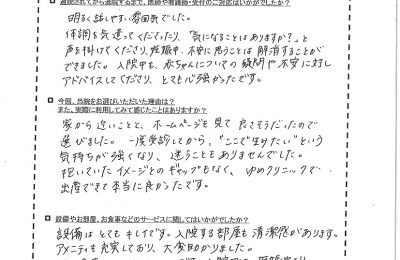 通院されてから退院するまで、医師や看護師・受付のご対応はいかがでしたか?
明るく話しやすい雰囲気でした。
体調を気遣ってくださったり、"気になることはありますか?"と
声を掛けてくださり、妊娠中、不安に思うことは解消することが
できました。入院中も、赤ちゃんについての疑問や不安に対し
アドバイスしてくださり、とても心強かったです。
今回、当院をお選びいただいた理由は?
また、実際に利用してみて感じたことはありますか?
家から近いことと、ホームページを見て良さそうだったので
選びました。一度受診してから、"ここで生みたい"という
気持ちが強くなり、迷うこともありませんでした。
抱いていたイメージとのギャップもなく、ゆめクリニックで
出産できて本当に良かったです。
設備やお部屋、お食事などのサービスに関してはいかがでしたか?
設備はとてもキレイです。入院する部屋も清潔感があります。
アメニティも充実しており、大変助かりました。